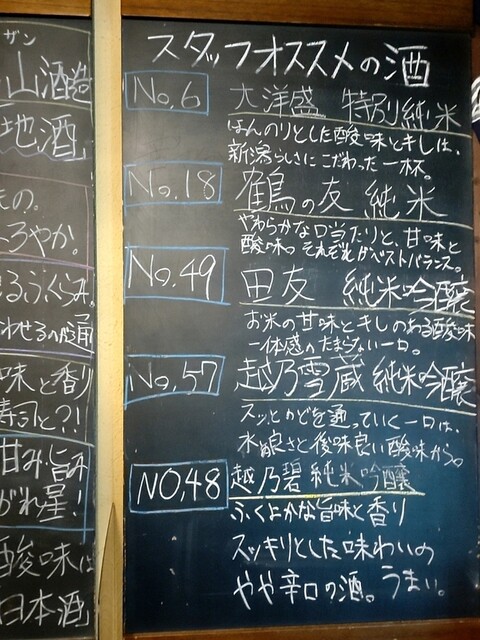 スタッフオススメの酒
No.6 大洋盛 特別純米
ほんのりとした酸味とキレは、
新潟らしさにこだわった一杯。
No.18 鶴の友 純米
やわらかな口当たりと、甘味と
酸味のそれぞれがベストバランス。
No.49 田友 純米吟醸
お米の甘味とキレのある酸味
一体感のたまらない一口。
No.57 越乃雪蔵 純米吟醸
スッとのどを通っていく一口は、
水の良さと後味良い酸味から。
NO.48 越乃碧 純米吟醸
ふくよかな旨味と香り
スッキリとした味わいの
やや辛口の酒。うまい。
ザン
山酒造
地酒」
もの。
ろやか。
るふくらみ。
わせるの
味と香り
寿司と?!
甘み・旨み
がれ星!
酸味は
日本酒」